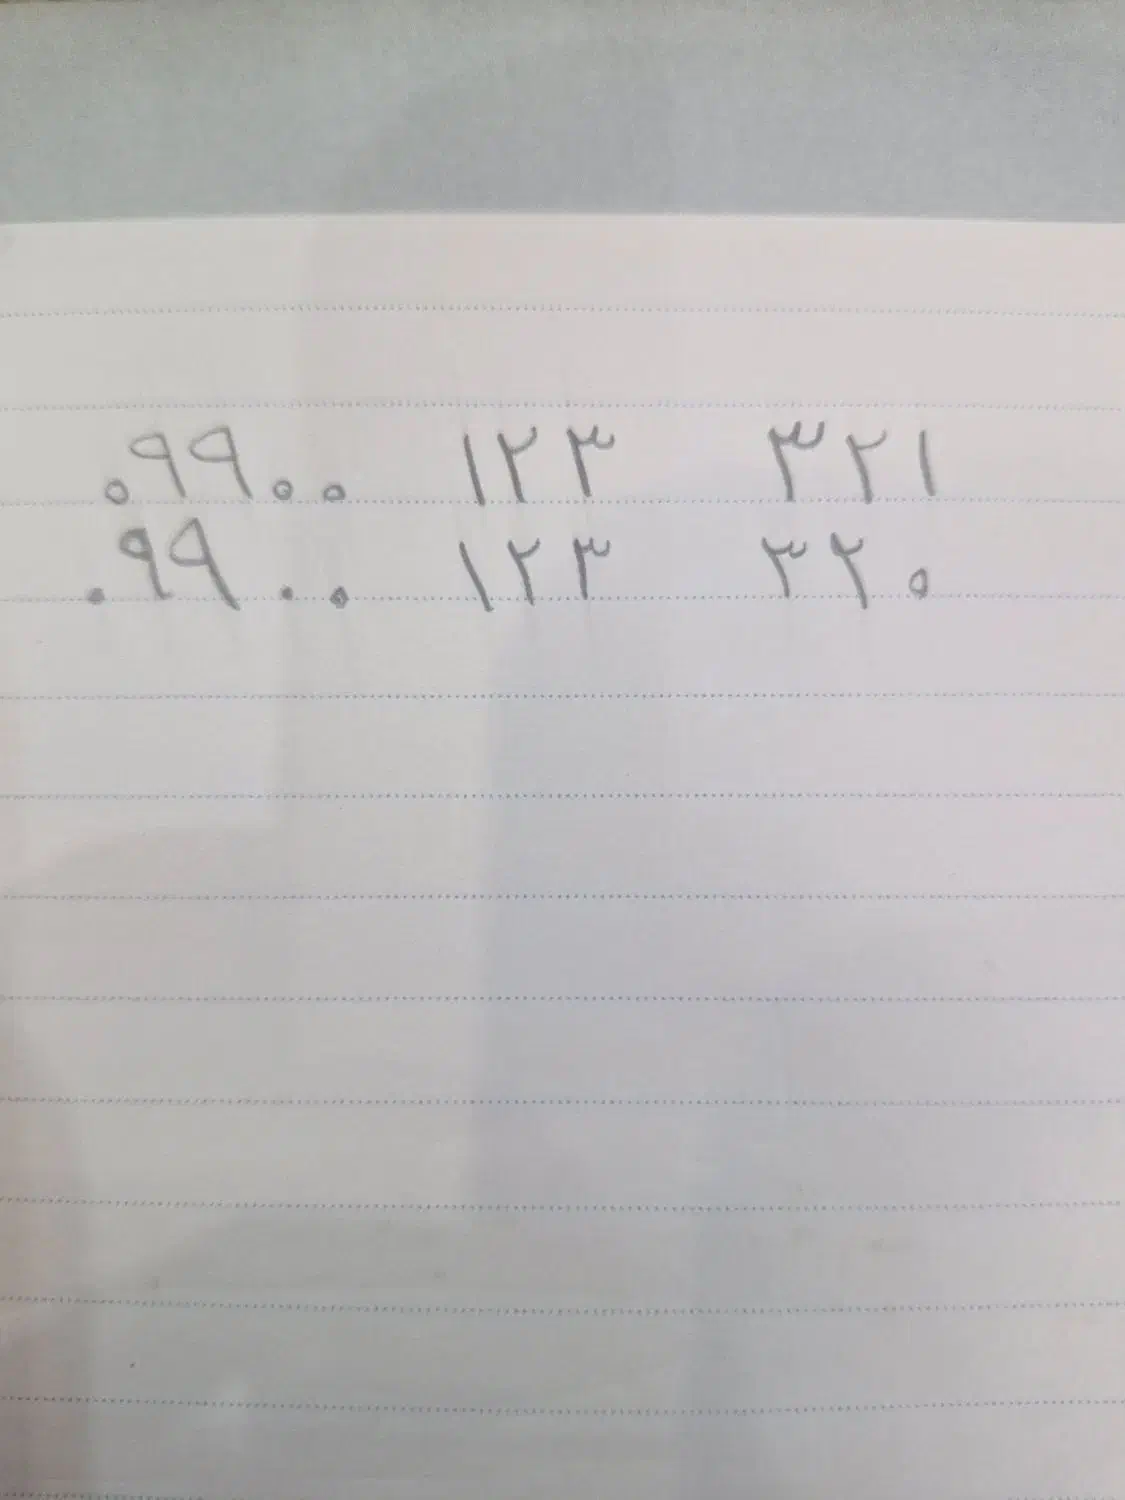 ۰۹۹۰۰ ۱۲۳ ۳۲۱
۰۹۹۰۰ ۱۲۳ ۳۲۰